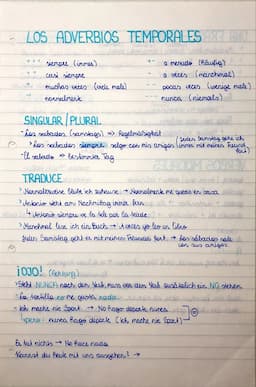 LOS ADVERBIOS TEMPORALES
+++ siempre (immer)
++ casi siempre
+ muchas veces (viele male)
+ normalmente
- a menudo (häufig)
- a veces (manchmal)
-- pocas veces (wenige male)
--- nunca (niemals)
SINGULAR / PLURAL
Los sábados (samstags) => Regelmäßigkeit
Los sábados siempre salgo con mis amigos (Jeden Samstag gehe ich immer mit meinen Freunden fort)
El sábado => bestimmter Tag
TRADUCE
Normalerweise bleibe ich zuhause → Normalmente me quedo en casa
Antonio sieht am Nachmittag immer fern
↳ Antonio siempre ve la tele por la tarde.
Manchmal lese ich ein Buch → A veces yo leo un libro
Jeden Samstag geht er mit seinen Freunden fort → Los sábados sale con sus amigos.
¡OJO! (Achtung)
Steht NUNCA nach dem Verb, muss vor dem Verb zusätzlich ein NO stehen.
La tortilla no me gusta nada
Ich mache nie Sport → No hago deporte nunca
¡pero!: nunca hago deporte (Ich mache nie Sport)
Er tut nichts → No hace nada
Kannst du heute mit uns ausgehen? →